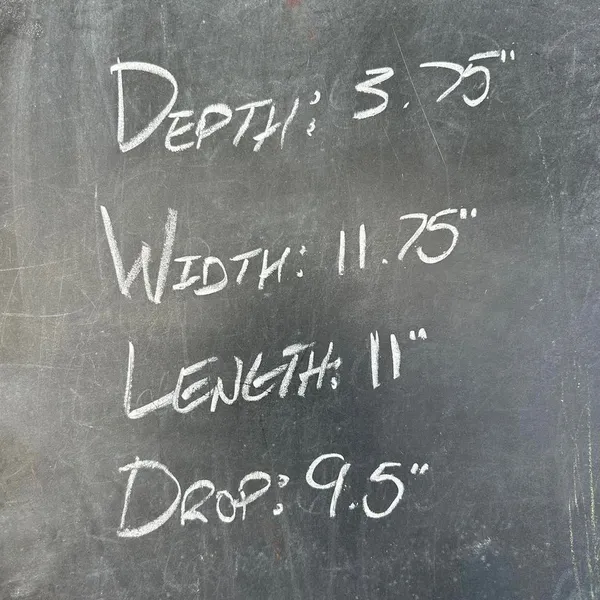 DEPTH: 3.75"
WIDTH: 11.75"
LENGTH: 11"
DROP: 9.5"